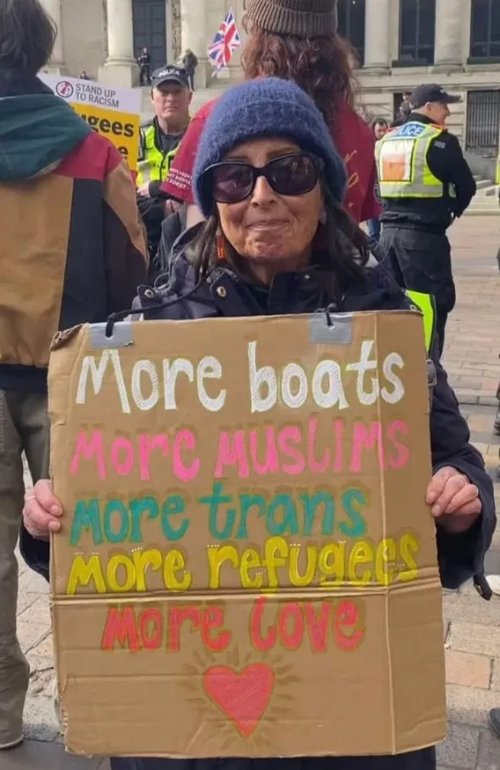 STAND UP
TO RACISM
POLICE
More boats
More MUSLIMS
More trans
More refugees
More Love